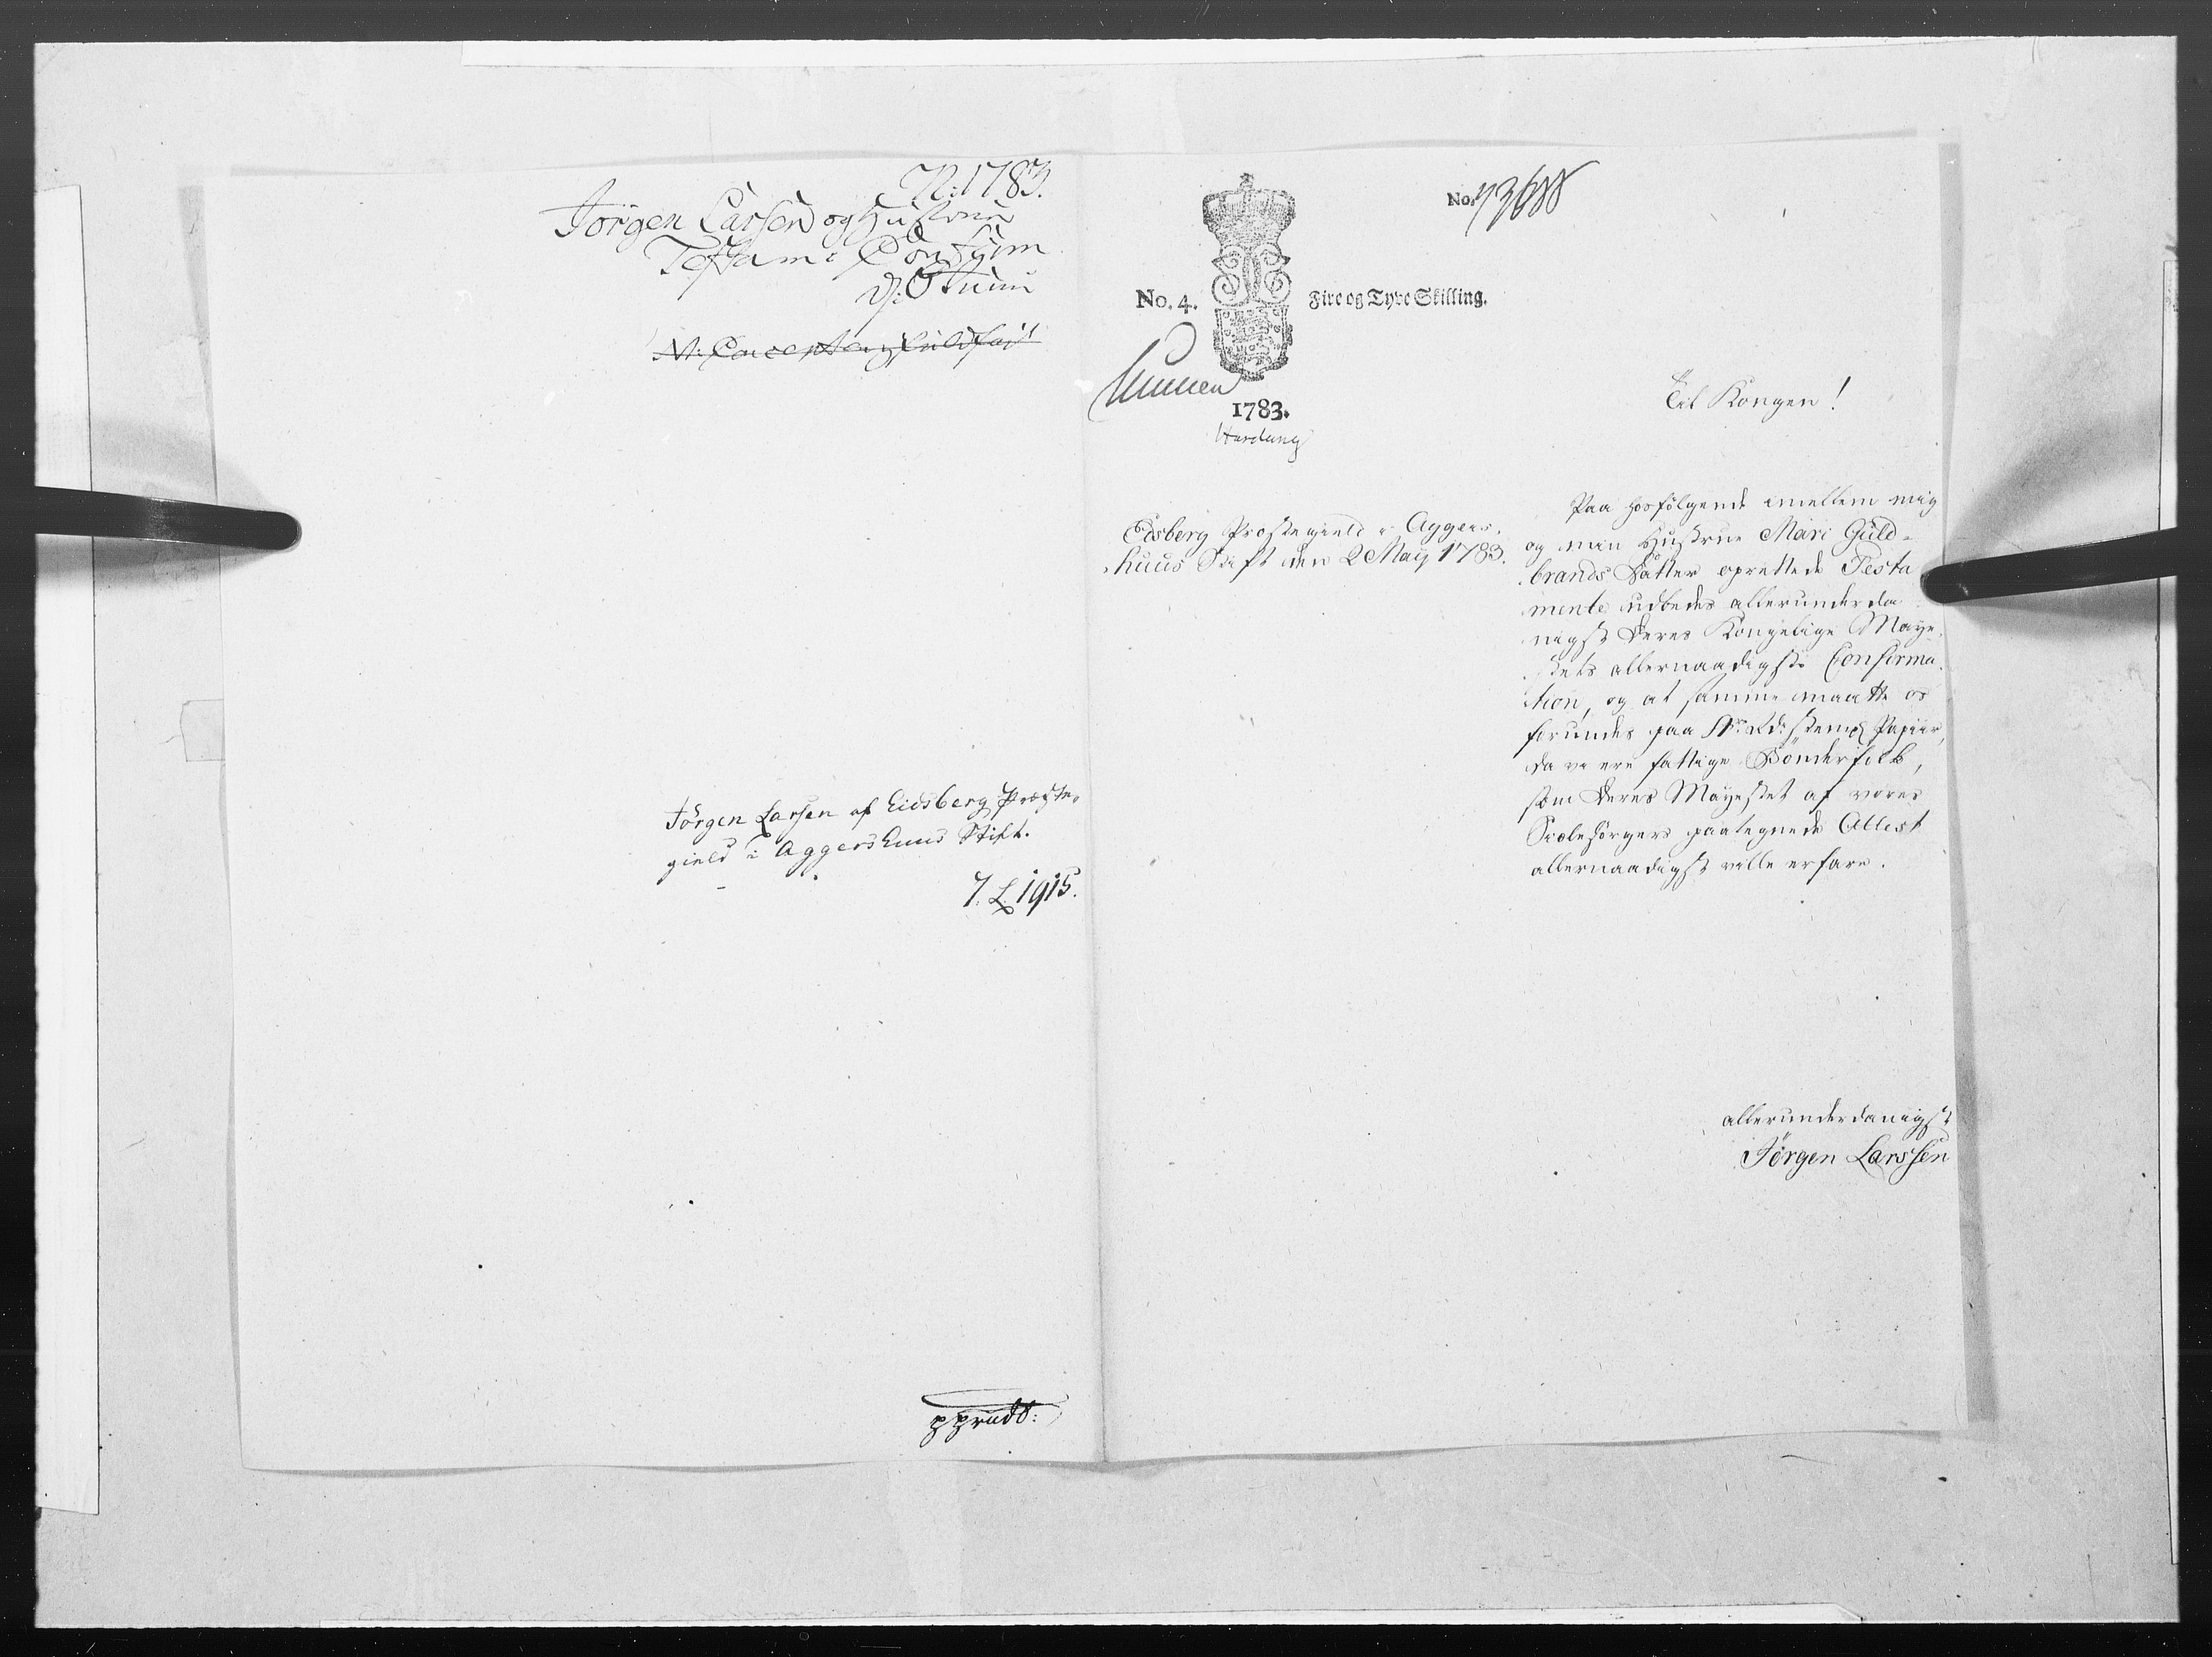 N: 1783.
Jörgen Larsen og Hustrue
Testam: Confirm
Jörgen Larsen af Eidsberg Præste-
gield i Aggershuus Stift.
7. L. 1915.
No.
No. 4. Fire og Tyve Skilling.
1783.
Hardung
Til Kongen!
Edsberg Præstegield i Aggers-
huus Stift den 2 Maij 1783.
Paa hosfölgende imellem mig
og min Hustrue Mari Guld-
brands Datter oprettede Testa
mente udbedes allerunderda
nigst Deres Kongelige Maye-
stets allernaadigste Confirma-
tion, og at samme maatte os
forundes paa stempl Papiir,
da vi ere fattige Bönderfolk,
som Deres Mayestet af vores
Siælesörgers paategnede Attest
allernaadigst ville erfare.
allerunderdanigst
Jörgen Larssen